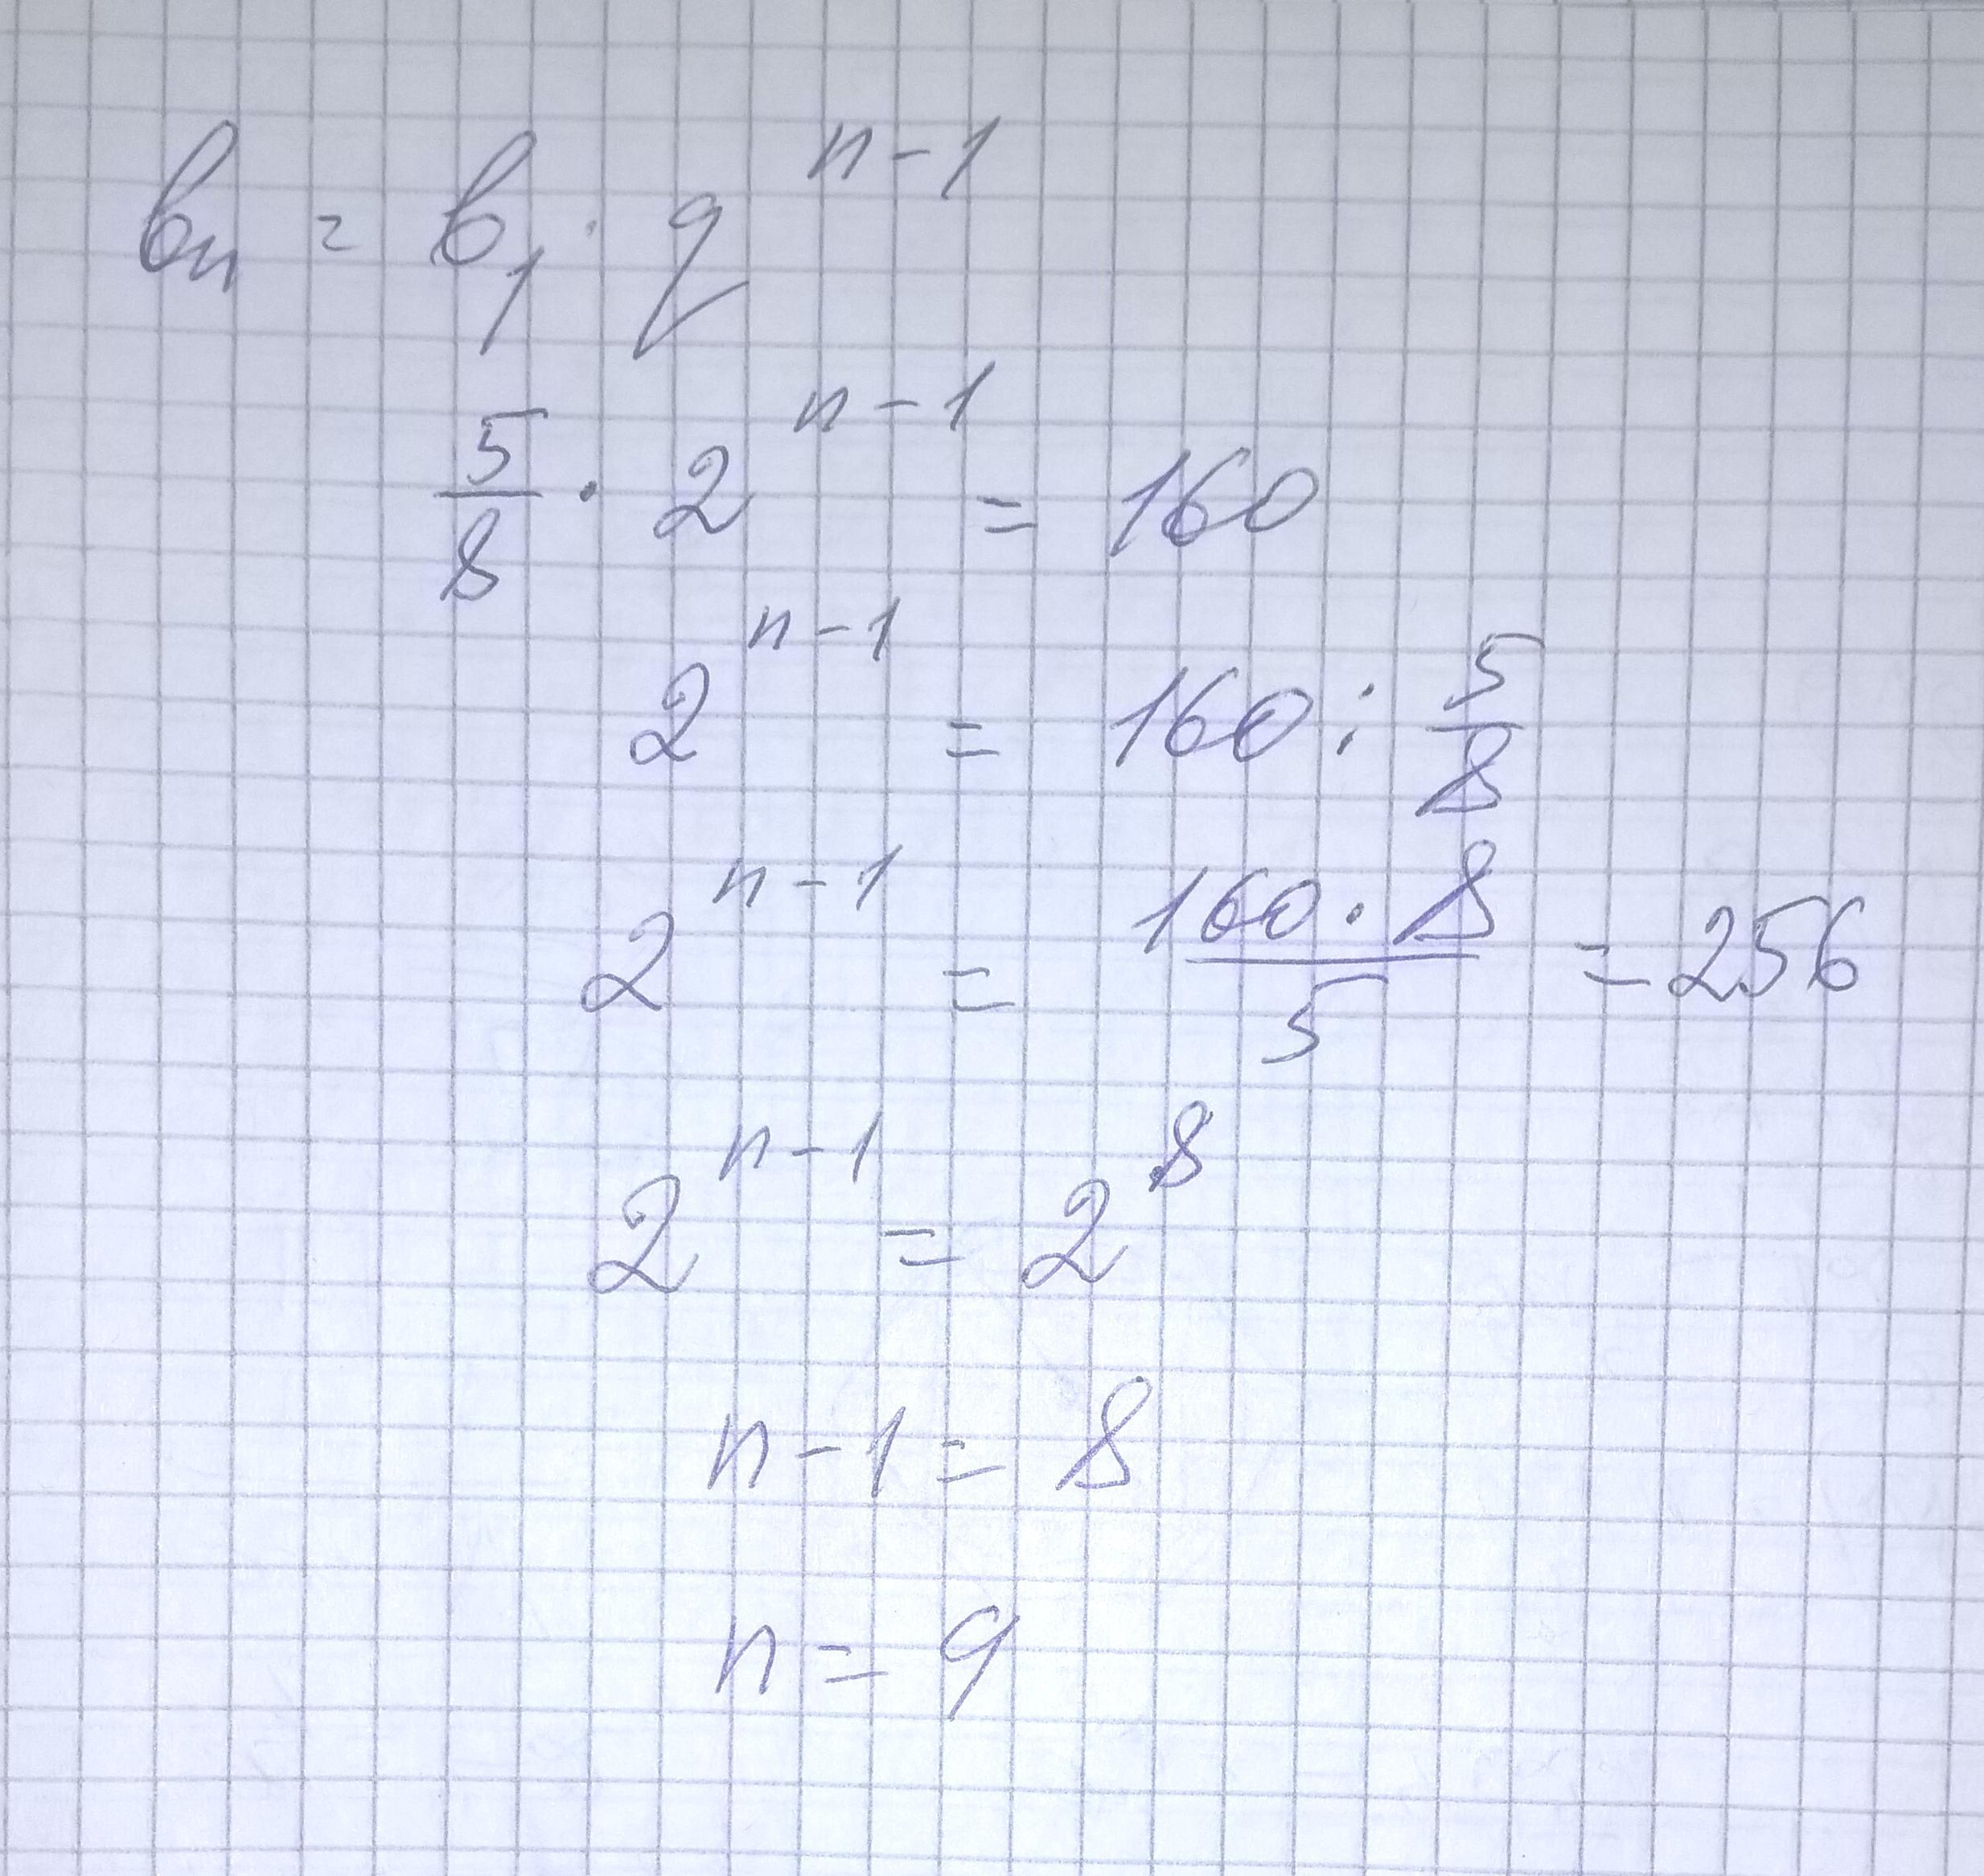 bₙ = b₁ · qⁿ⁻¹
5/8 · 2ⁿ⁻¹ = 160
2ⁿ⁻¹ = 160 : 5/8
2ⁿ⁻¹ = (160 · 8)/5 = 256
2ⁿ⁻¹ = 2⁸
n - 1 = 8
n = 9